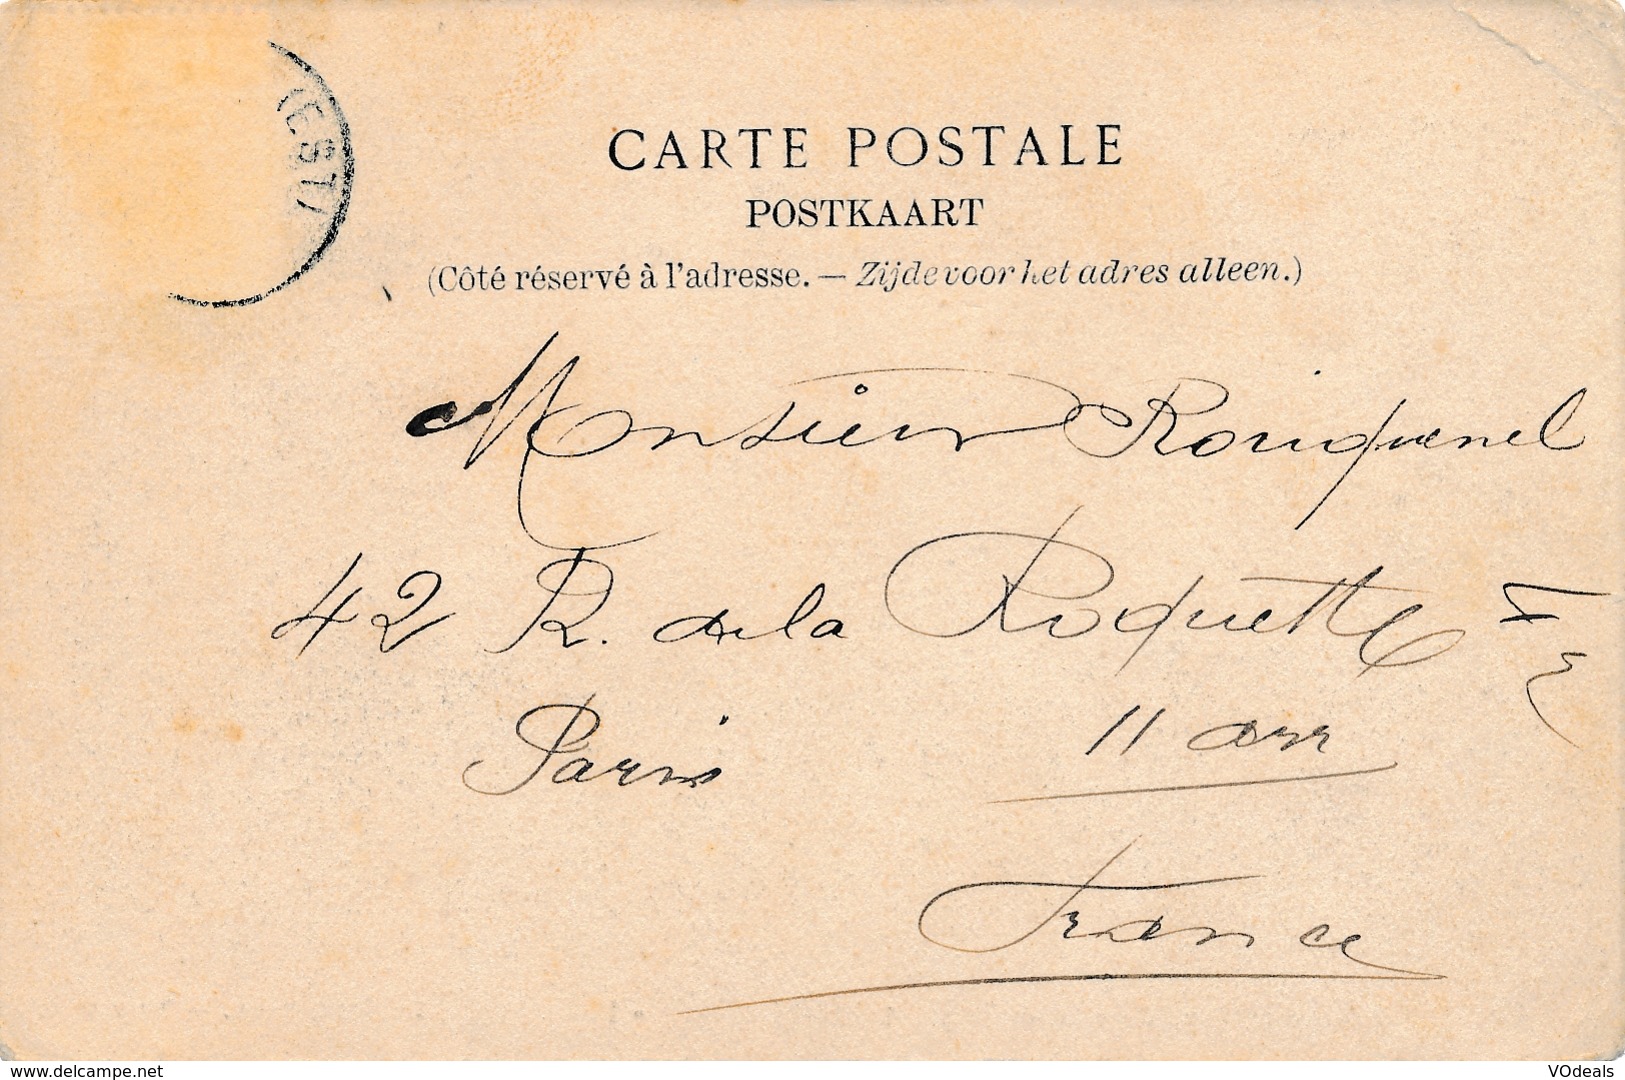 (EST)
CARTE POSTALE
POSTKAART
(Côté réservé à l'adresse. — Zijde voor het adres alleen.)
Monsieur Rouiquenel
42 R. de la Roquette
Paris 11 arr
France
www.delcampe.net
VOdeals